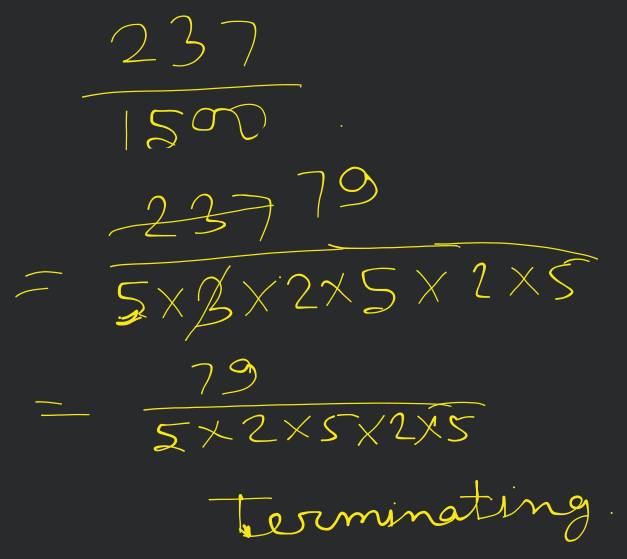 237
1500
237 79
= 5×3×2×5×2×5
79
= 5×2×5×2×5
Terminating.